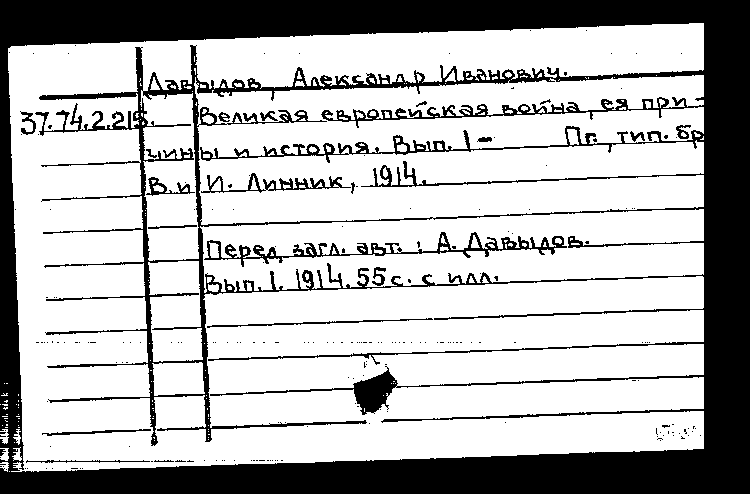 Давыдов, Александр Иванович.
37.74.2.215. Великая европейская война, ея при-
чины и история. Вып. 1- Пг., тип. бр
В. и И. Линник, 1914.
Перед загл. авт.: А. Давыдов.
Вып. 1. 1914. 55 с. с илл.